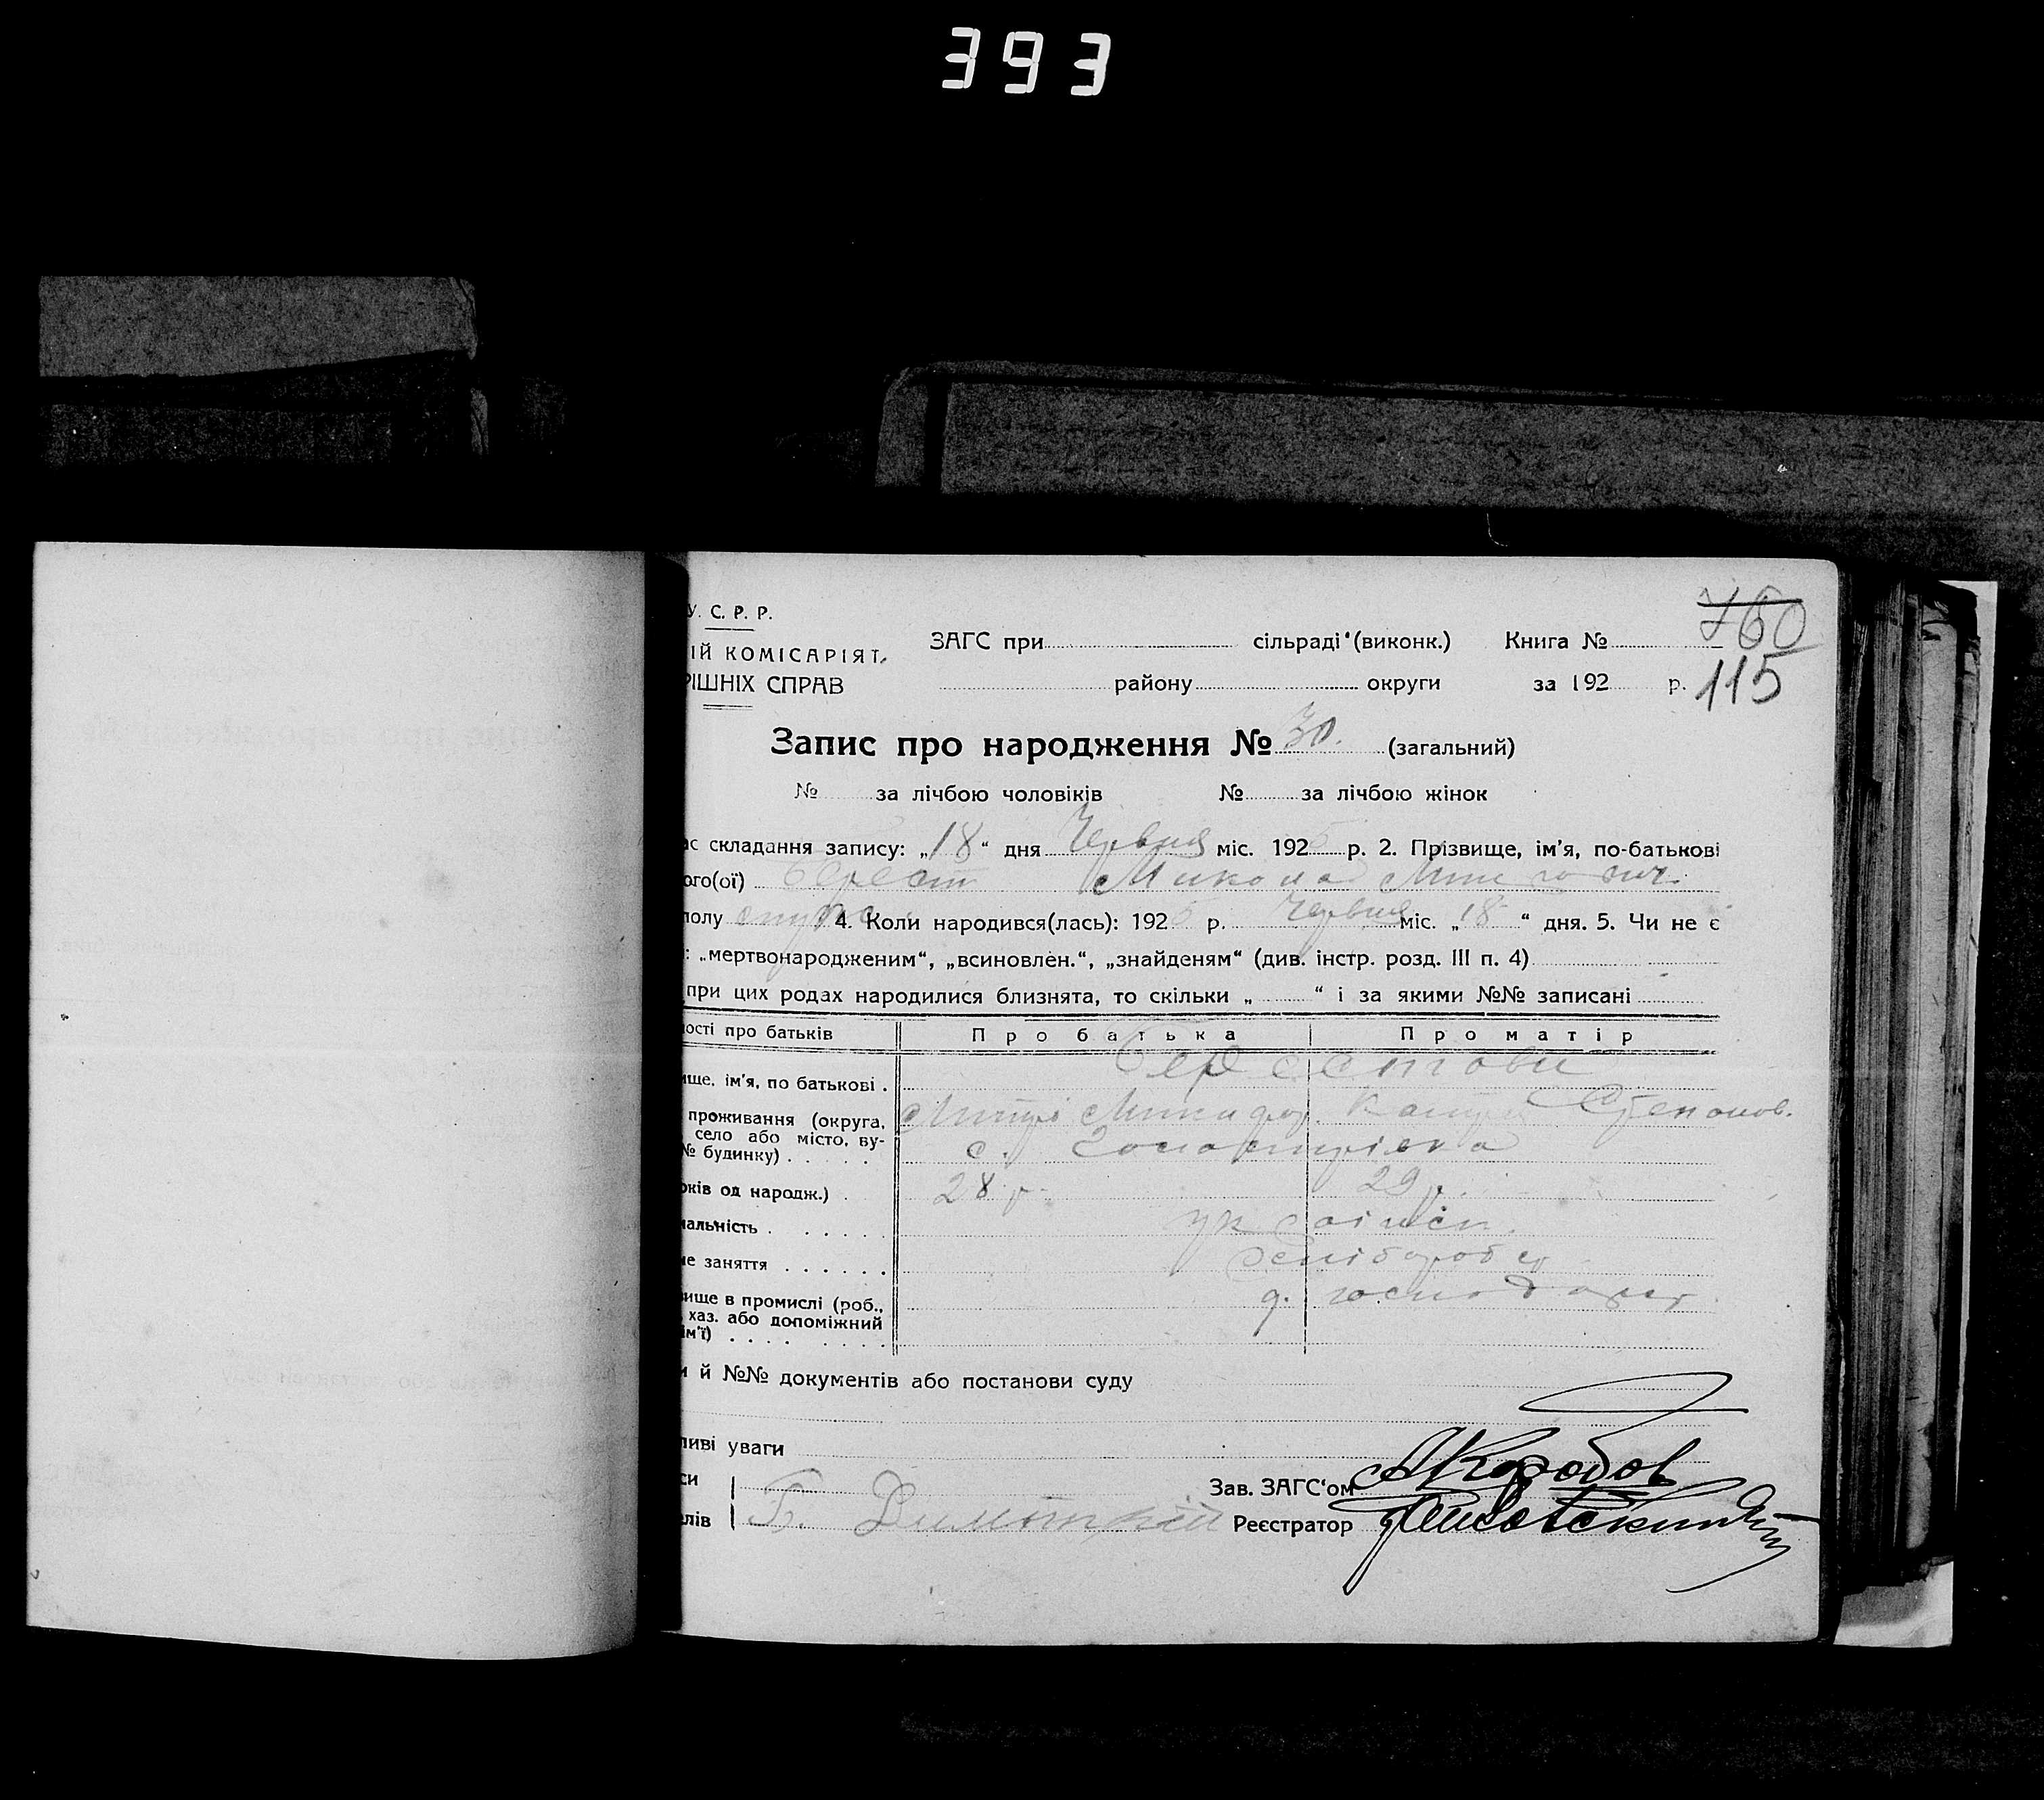 393
У. С. Р. Р.
ІЙ КОМІСАРІЯТ
РІШНІХ СПРАВ
ЗАГС при сільраді (виконк.) Книга № 760
району округи за 192 р. 115
Запис про народження № 30. (загальний)
№ за лічбою чоловіків № за лічбою жінок
ас складання запису: „18“ дня Червня міс. 1925 р. 2. Прізвище, ім'я, по-батькові
ого(ої) Берест Микола
полу 4. Коли народився(лась): 1925 р. Червня міс. „18“ дня. 5. Чи не є
: „мертвонародженим“, „всиновлен.“, „знайденям“ (див. інстр. розд. III п. 4)
при цих родах народилися близнята, то скільки „ “ і за якими №№ записані
ості про батьків Про батька Про матір
Берестови
ище, ім'я, по батькові .
проживання (округа, село або місто, ву- № будинку) . . . . .
с.
оків од народж.) . 28 р. 29 р.
нальність . . . . . . україн.
не заняття . . . . . . хлібороб
вище в промислі (роб., хаз. або допоміжний ім'ї) . . . . . . . . господар
и й №№ документів або постанови суду
ливі уваги
си
Зав. ЗАГС'ом АКоробов
елів Б. Реєстратор